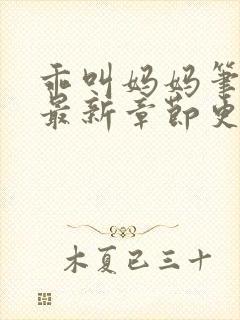 乖叫妈妈笔
最新章节更
木夏已三十